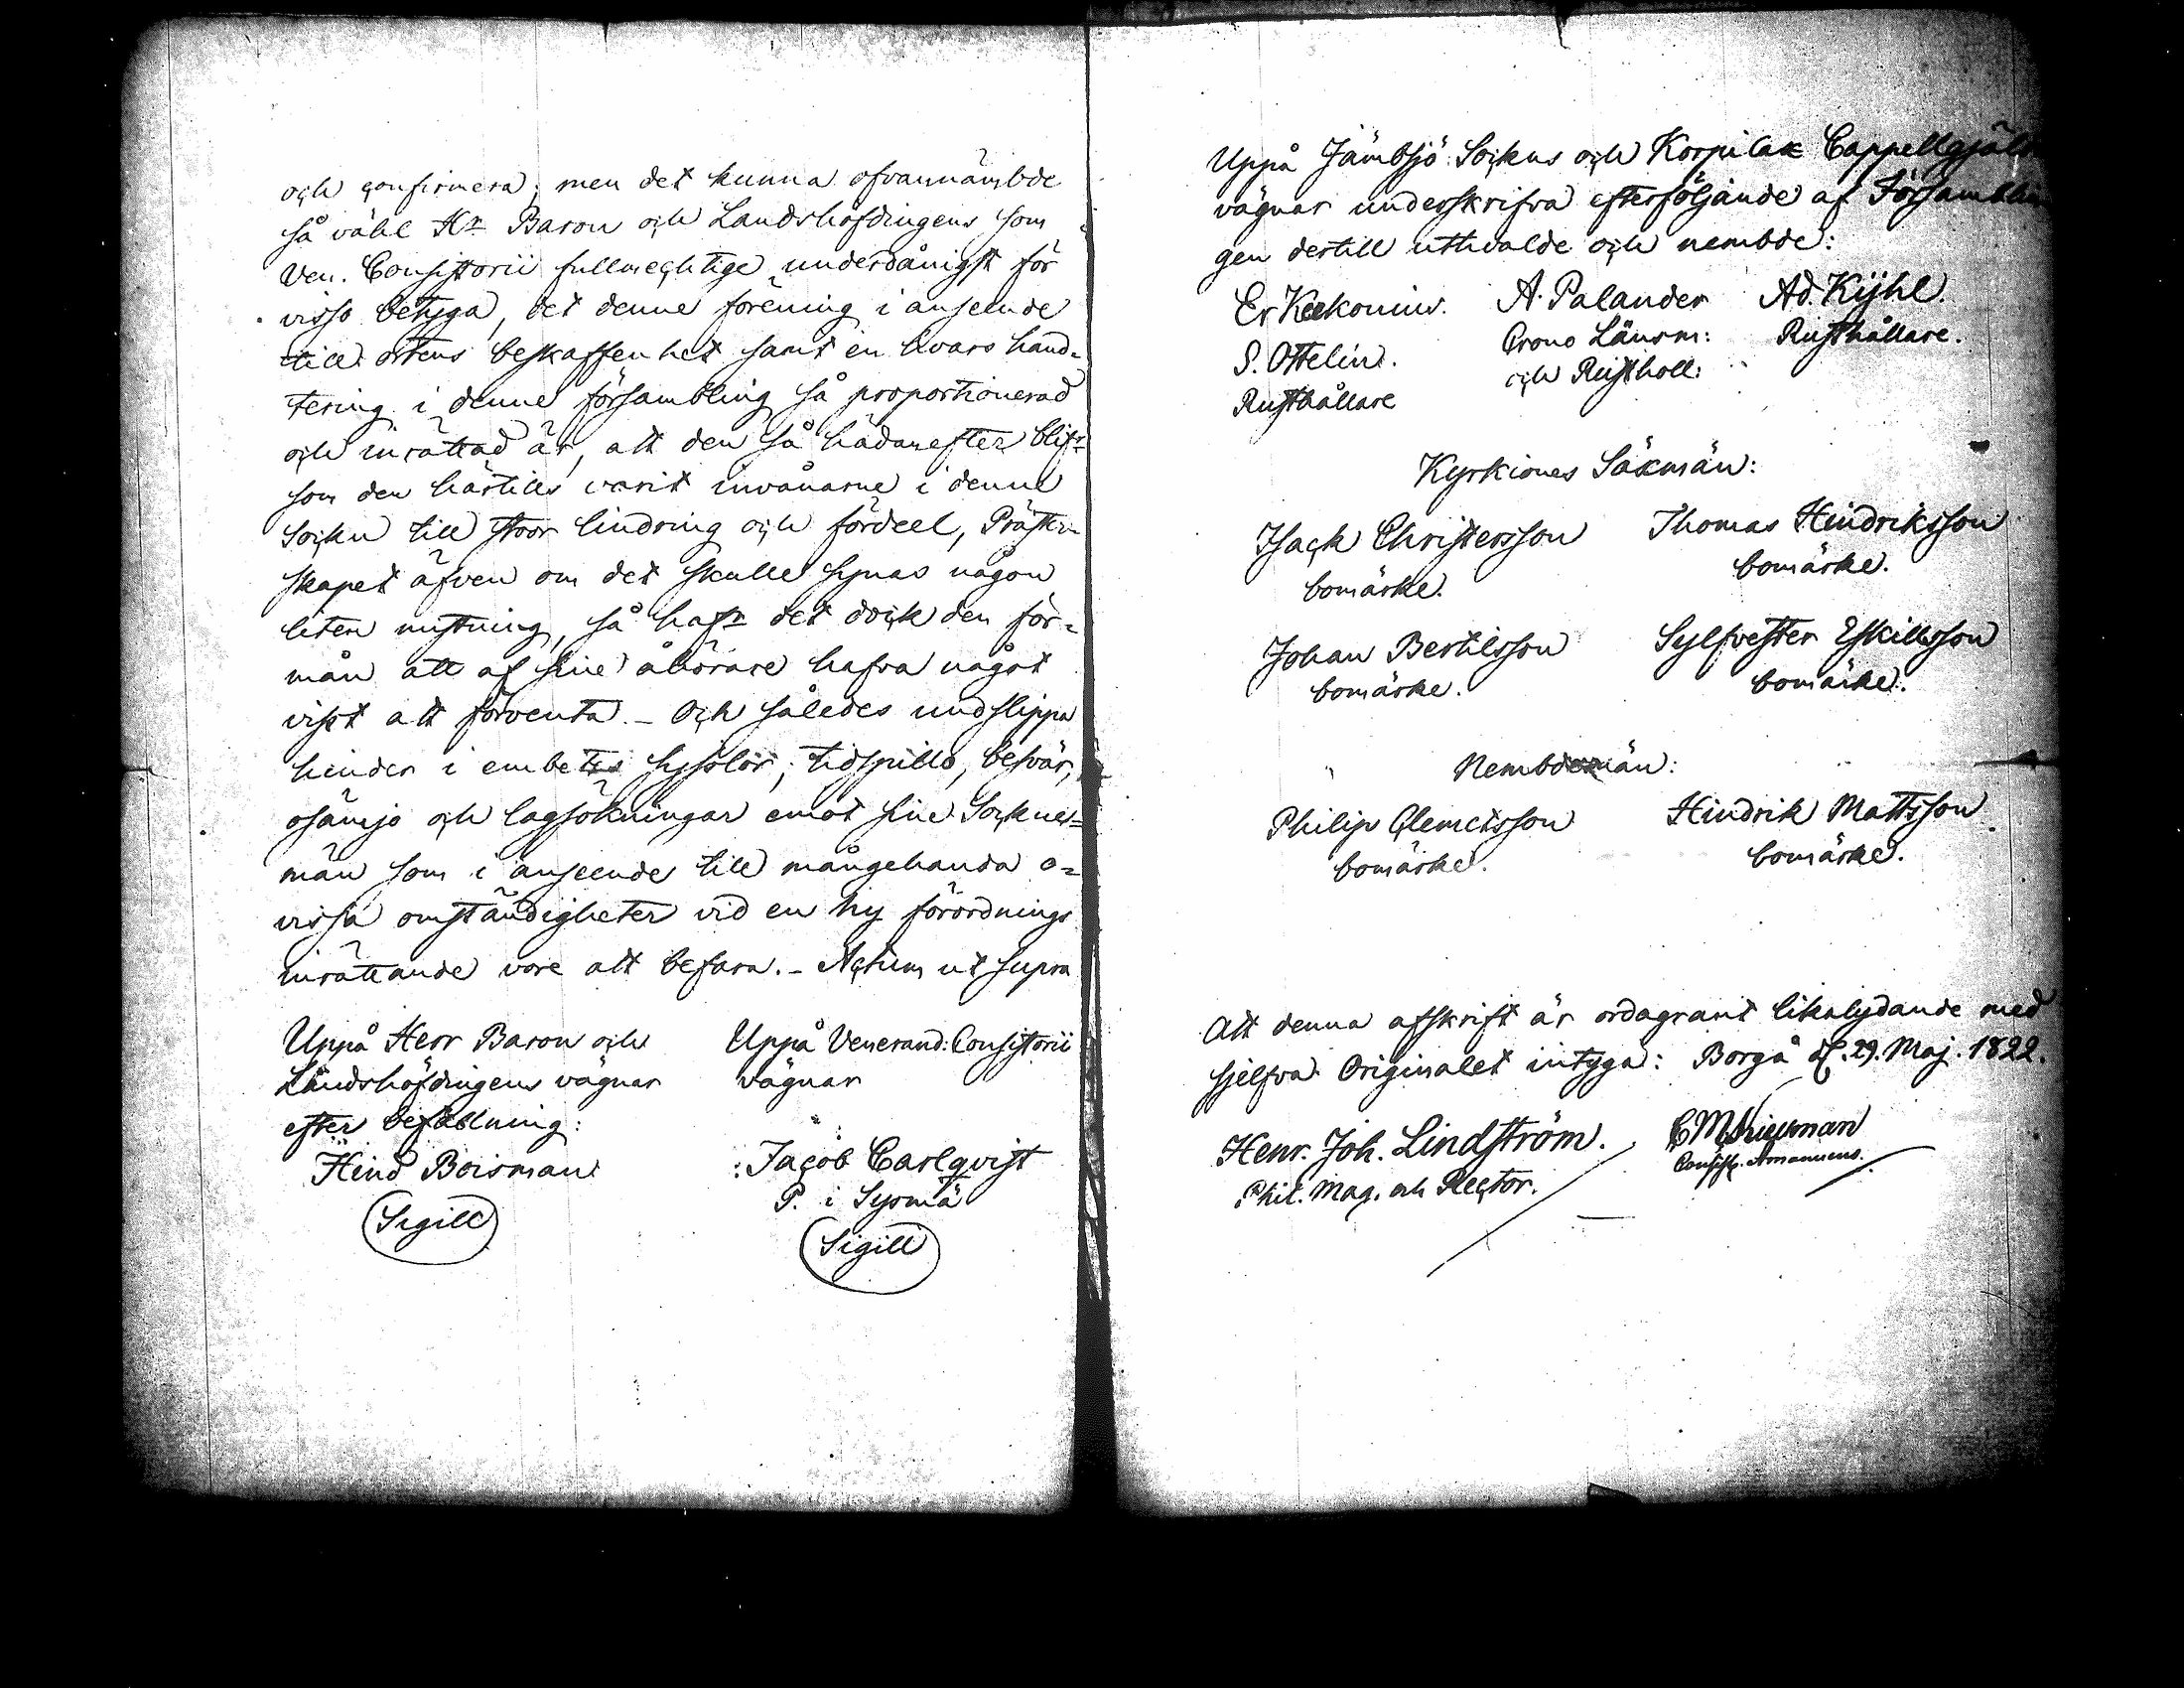 och confirmera; men det kunna ofvannämbde
så vähl Hr Baron och Landshöfdingens som
Ven. Consistorii fullmechtige underdånigst för
visso betyga, det denne förening i anseende
till ortens beskaffenhet samt en hvars hand-
tering i denne försambling så proportionerad
och inrättad är, att den så hädanefter blifr
som den härtills varit invånarne i denne
Sockn till stoor lindring och fördeel, Präster-
skapet äfven om det skulle synas någon
liten mistning, så hafr det dock den för-
mån att af sine åhörare hafva något
visst att förventa. - Och således undslippa
hinder i embetes sysslor, tidspillo, besvär,
osämjo och lagsökningar emot sine Sockne-
män som i anseende till mångehanda o-
vissa omständigheter vid en ny förordnings
inrättande vore att befara. - Actum ut supra
Uppå Herr Baron och
Landshöfdingens vägnar
efter befallning:
Hind Boisman
Sigill
Uppå Venerand: Consistorii
vägnar
Jacob Carlqvist
P. i Sysmä
Sigill
Uppå Jämbsjö Sockns och Korpilax Cappellgjäl
vägnar underskrifva efterföljande af Församblin
gen dertill uthvalde och nembde:
Er Keckonius. A. Palander Ad. Kijhl.
S. Ottelin. Crono Länsm: Rusthållare.
Rusthållare och Rustholl:
Kyrkiones Säxmän:
Isack Christersson Thomas Hindriksson
bomärke. bomärke.
Johan Bertilsson Sylfvester Eskillsson
bomärke. bomärke.
Nembdemän:
Philip Clemetsson Hindrik Mattsson
bomärke. bomärke.
Att denna afskrift är ordagrant likalydande med
sjelfva Originalet intyga: Borgå d. 29. Maj. 1822.
Henr. Joh. Lindström.
Phil. Mag. och Rector.
Consist. Amanuens.